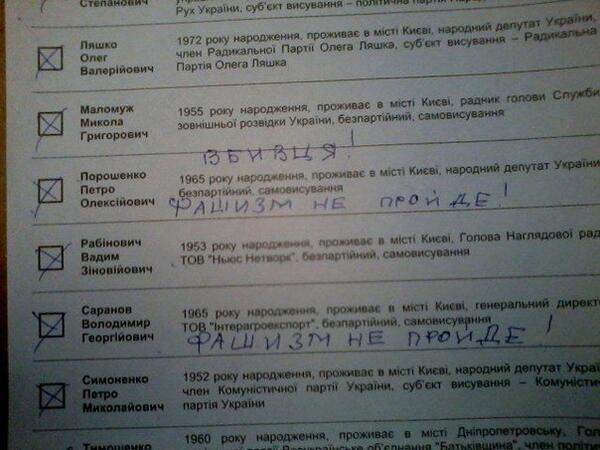 Степанович
Рух України, суб'єкт висування – політична партія
Ляшко
Олег
Валерійович
1972 року народження, проживає в місті Києві, народний депутат України,
член Радикальної Партії Олега Ляшка, суб'єкт висування – Радикальна
Партія Олега Ляшка
Маломуж
Микола
Григорович
1955 року народження, проживає в місті Києві, радник голови Служби
зовнішньої розвідки України, безпартійний, самовисування
ВБИВЦЯ!
Порошенко
Петро
Олексійович
1965 року народження, проживає в місті Києві, народний депутат України
безпартійний, самовисування
ФАШИЗМ НЕ ПРОЙДЕ!
Рабінович
Вадим
Зіновійович
1953 року народження, проживає в місті Києві, Голова Наглядової рад
ТОВ "Ньюс Нетворк", безпартійний, самовисування
Саранов
Володимир
Георгійович
1965 року народження, проживає в місті Києві, генеральний директо
ТОВ "Інтерагроекспорт", безпартійний, самовисування
ФАШИЗМ НЕ ПРОЙДЕ!
Симоненко
Петро
Миколайович
1952 року народження, проживає в місті Києві, народний депутат Украї
член Комуністичної партії України, суб'єкт висування – Комуністич
партія України
Тимошенко
1960 року народження, проживає в місті Дніпропетровську, Гол
Всеукраїнське об'єднання "Батьківщина", член політи